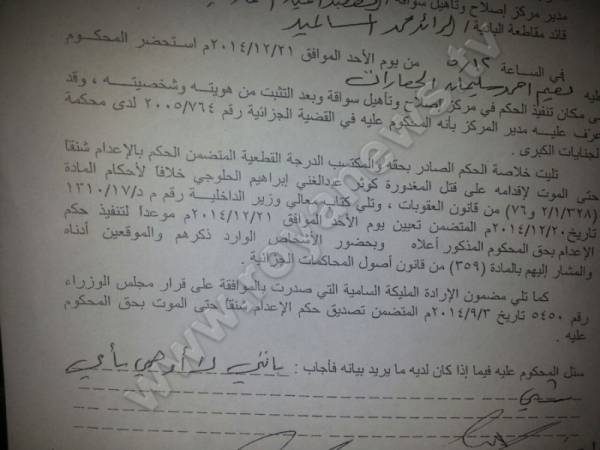 مدير مركز إصلاح وتأهيل سواقة /
قائد مقاطعة البادية / الرائد محمد السالميد
في الساعة ٥/١٢ من يوم الأحد الموافق ٢٠١٤/١٢/٢١م استحضر المحكوم
عليه نعيم احمد سليمان الجعارات
في مكان تنفيذ الحكم في مركز إصلاح وتأهيل سواقة وبعد التثبت من هويته وشخصيته ، وقد
عرف عليه مدير المركز بأنه المحكوم عليه في القضية الجزائية رقم ٢٠٠٥/٧٦٤ لدى محكمة
الجنايات الكبرى .
تليت خلاصة الحكم الصادر بحقه والمكتسب الدرجة القطعية المتضمن الحكم بالإعدام شنقاً
حتى الموت لإقدامه على قتل المغدورة كوثر عبدالغني إبراهيم الحلوجي خلافاً لأحكام المادة
(٢/١/٣٢٨ و٧٦) من قانون العقوبات ، وتلي كتاب معالي وزير الداخلية رقم م د/١٧/١٣١٠
تاريخ ٢٠١٤/١٢/٢٠م المتضمن تعيين يوم الأحد الموافق ٢٠١٤/١٢/٢١م موعدا لتنفيذ حكم
الإعدام بحق المحكوم المذكور أعلاه وبحضور الأشخاص الوارد ذكرهم والموقعين أدناه
والمشار إليهم بالمادة (٣٥٩) من قانون أصول المحاكمات الجزائية .
كما تلي مضمون الإرادة الملكية السامية التي صدرت بالموافقة على قرار مجلس الوزراء
رقم ٥٤٥٠ تاريخ ٢٠١٤/٩/٣م المتضمن تصديق حكم الإعدام شنقاً حتى الموت بحق المحكوم
عليه .
سئل المحكوم عليه فيما إذا كان لديه ما يريد بيانه فأجاب : بانني لا أوصي بأي
شيء
www.royanews.tv